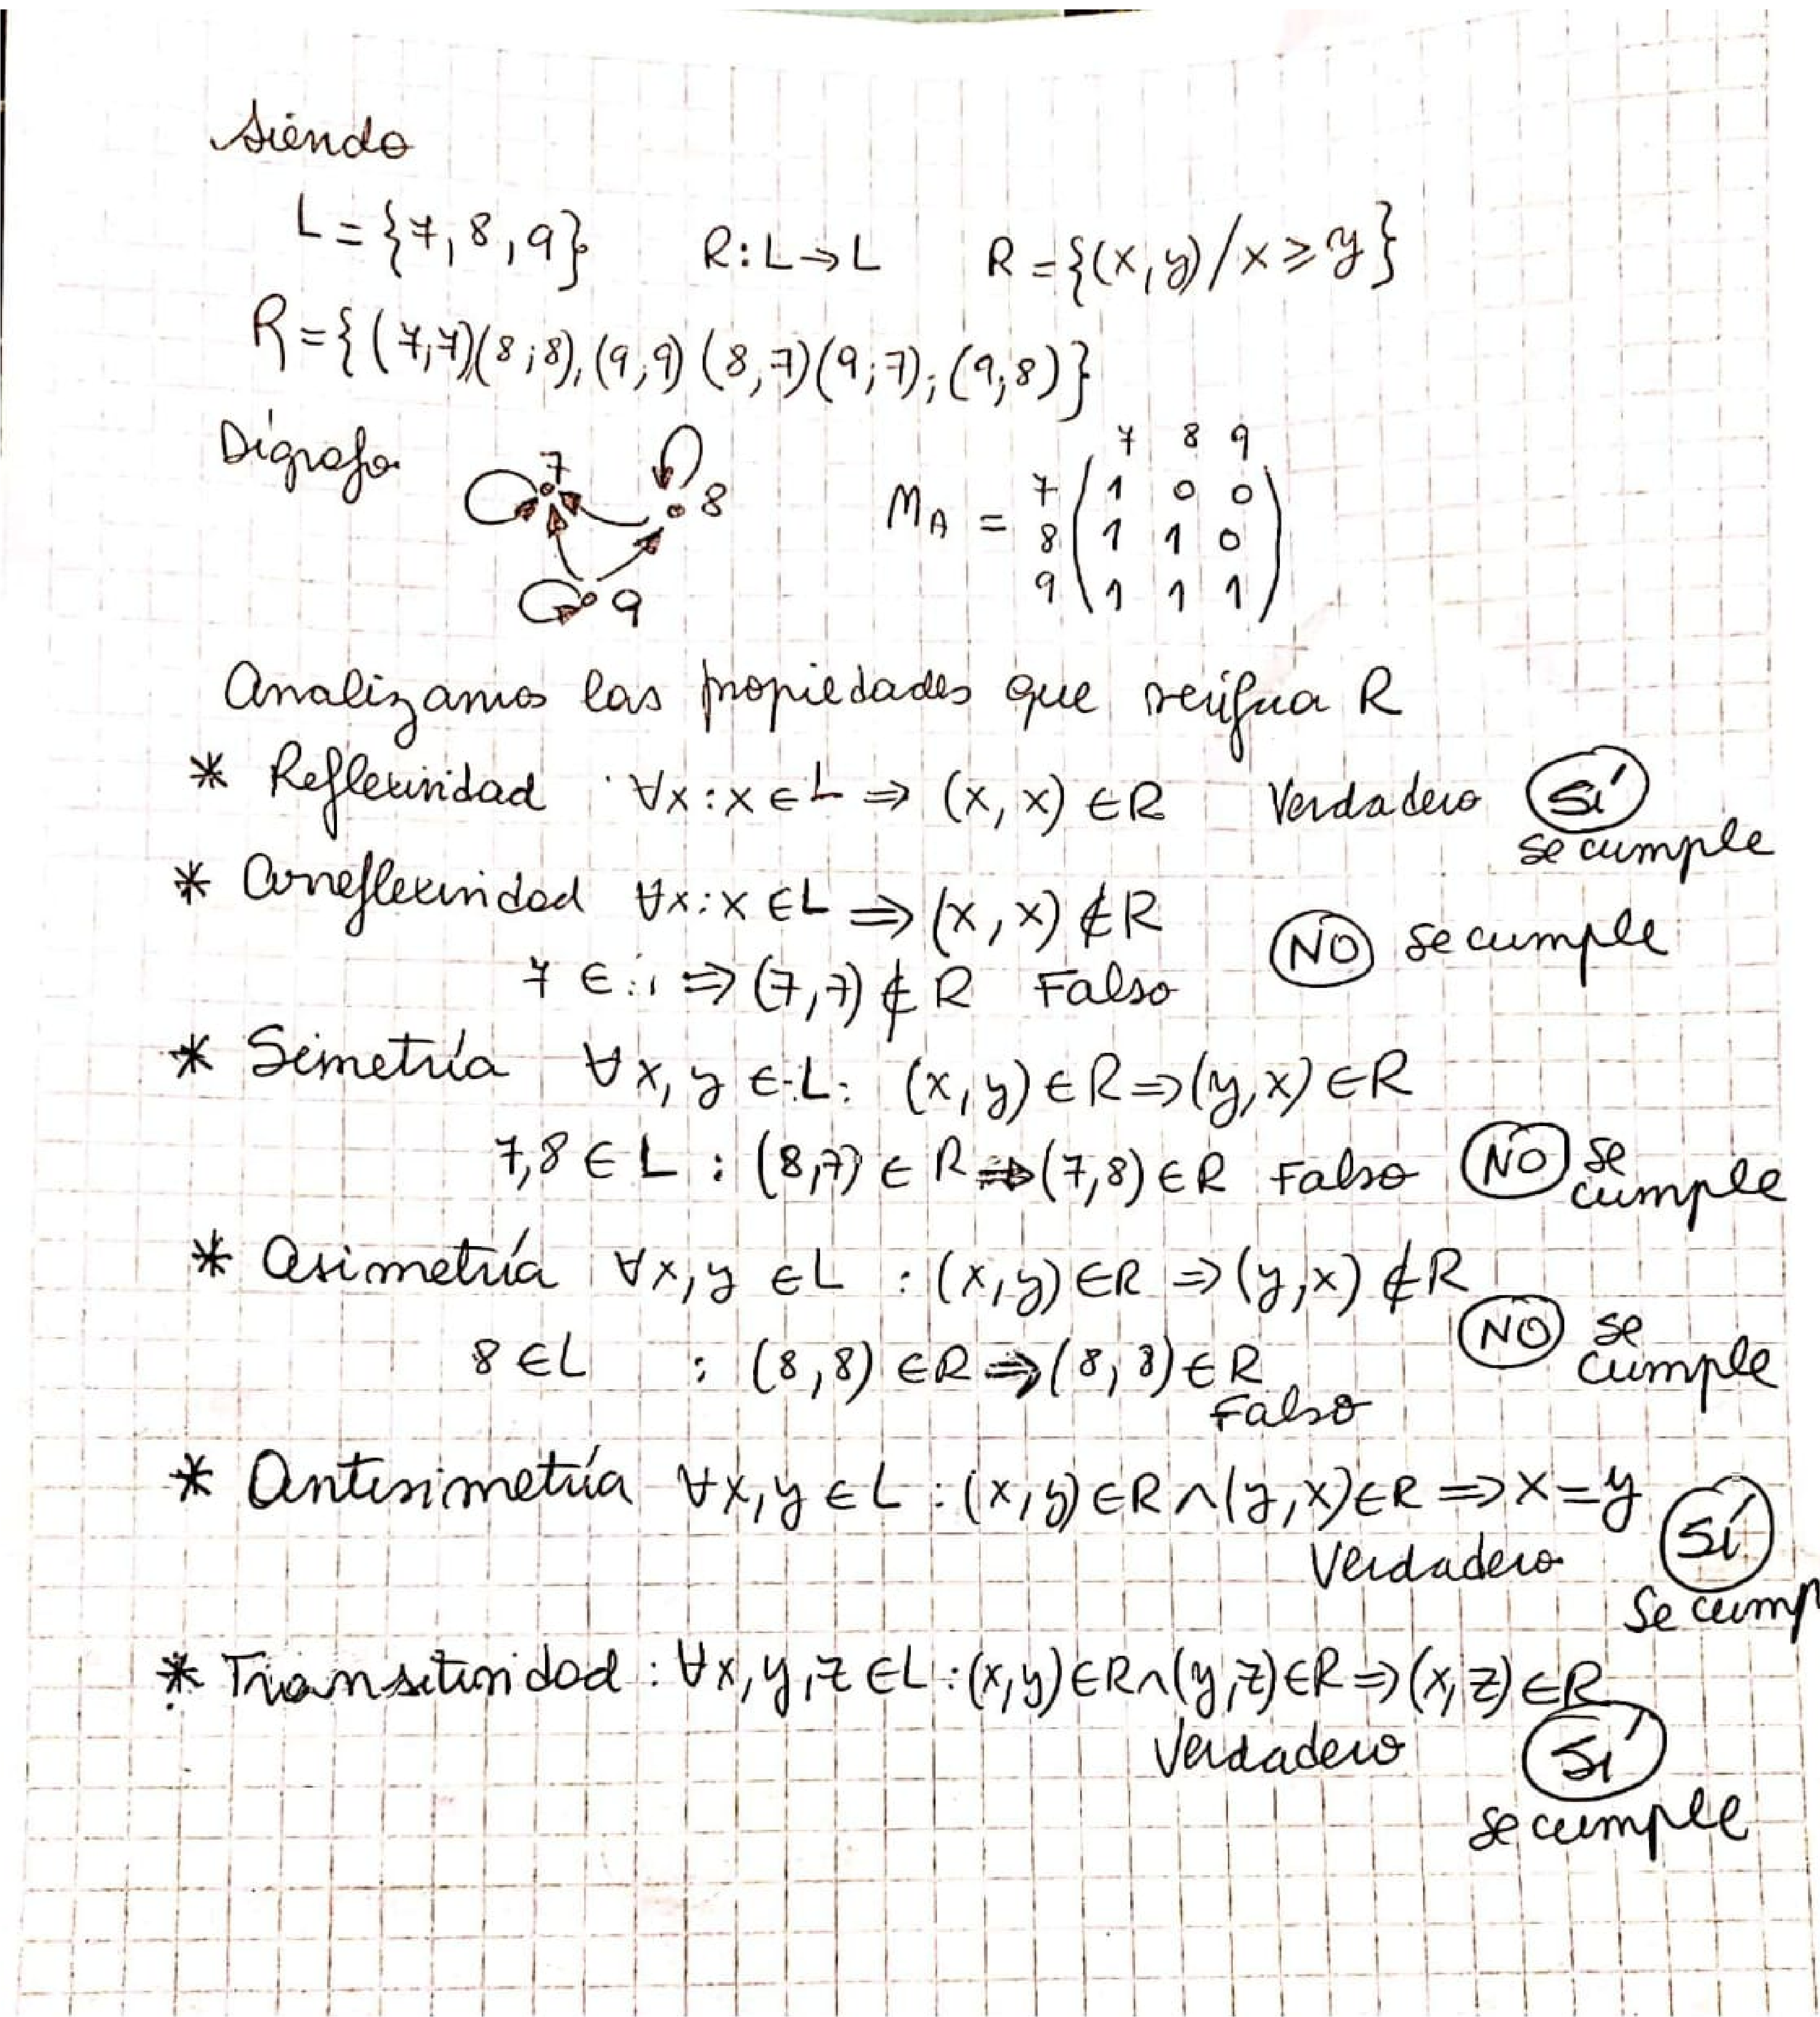 Siendo
L = {7, 8, 9} R: L → L R = {(x, y) / x ⩾ y}
R = { (7,7)(8;8), (9,9) (8,7)(9;7); (9;8)}
Dígrafo
7
8
9
7 8 9
M_A = 7 ( 1 0 0
8 1 1 0
9 1 1 1 )
Analizamos las propiedades que verifica R
* Reflexividad ∀x: x ∈ L ⇒ (x, x) ∈ R Verdadero SÍ
se cumple
* Arreflexividad ∀x: x ∈ L ⇒ (x, x) ∉ R
NO se cumple
7 ∈ ⇒ (7,7) ∉ R Falso
* Simetría ∀x, y ∈ L: (x, y) ∈ R ⇒ (y, x) ∈ R
7,8 ∈ L : (8,7) ∈ R ⇒ (7,8) ∈ R Falso NO se
cumple
* Asimetría ∀x, y ∈ L : (x, y) ∈ R ⇒ (y, x) ∉ R
NO se
cumple
8 ∈ L : (8,8) ∈ R ⇒ (8,8) ∈ R
Falso
* Antisimetría ∀x, y ∈ L : (x, y) ∈ R ∧ (y, x) ∈ R ⇒ x = y
Verdadero SÍ
Se cump
* Transitividad : ∀x, y, z ∈ L : (x, y) ∈ R ∧ (y, z) ∈ R ⇒ (x, z) ∈ R
Verdadero SÍ
se cumple